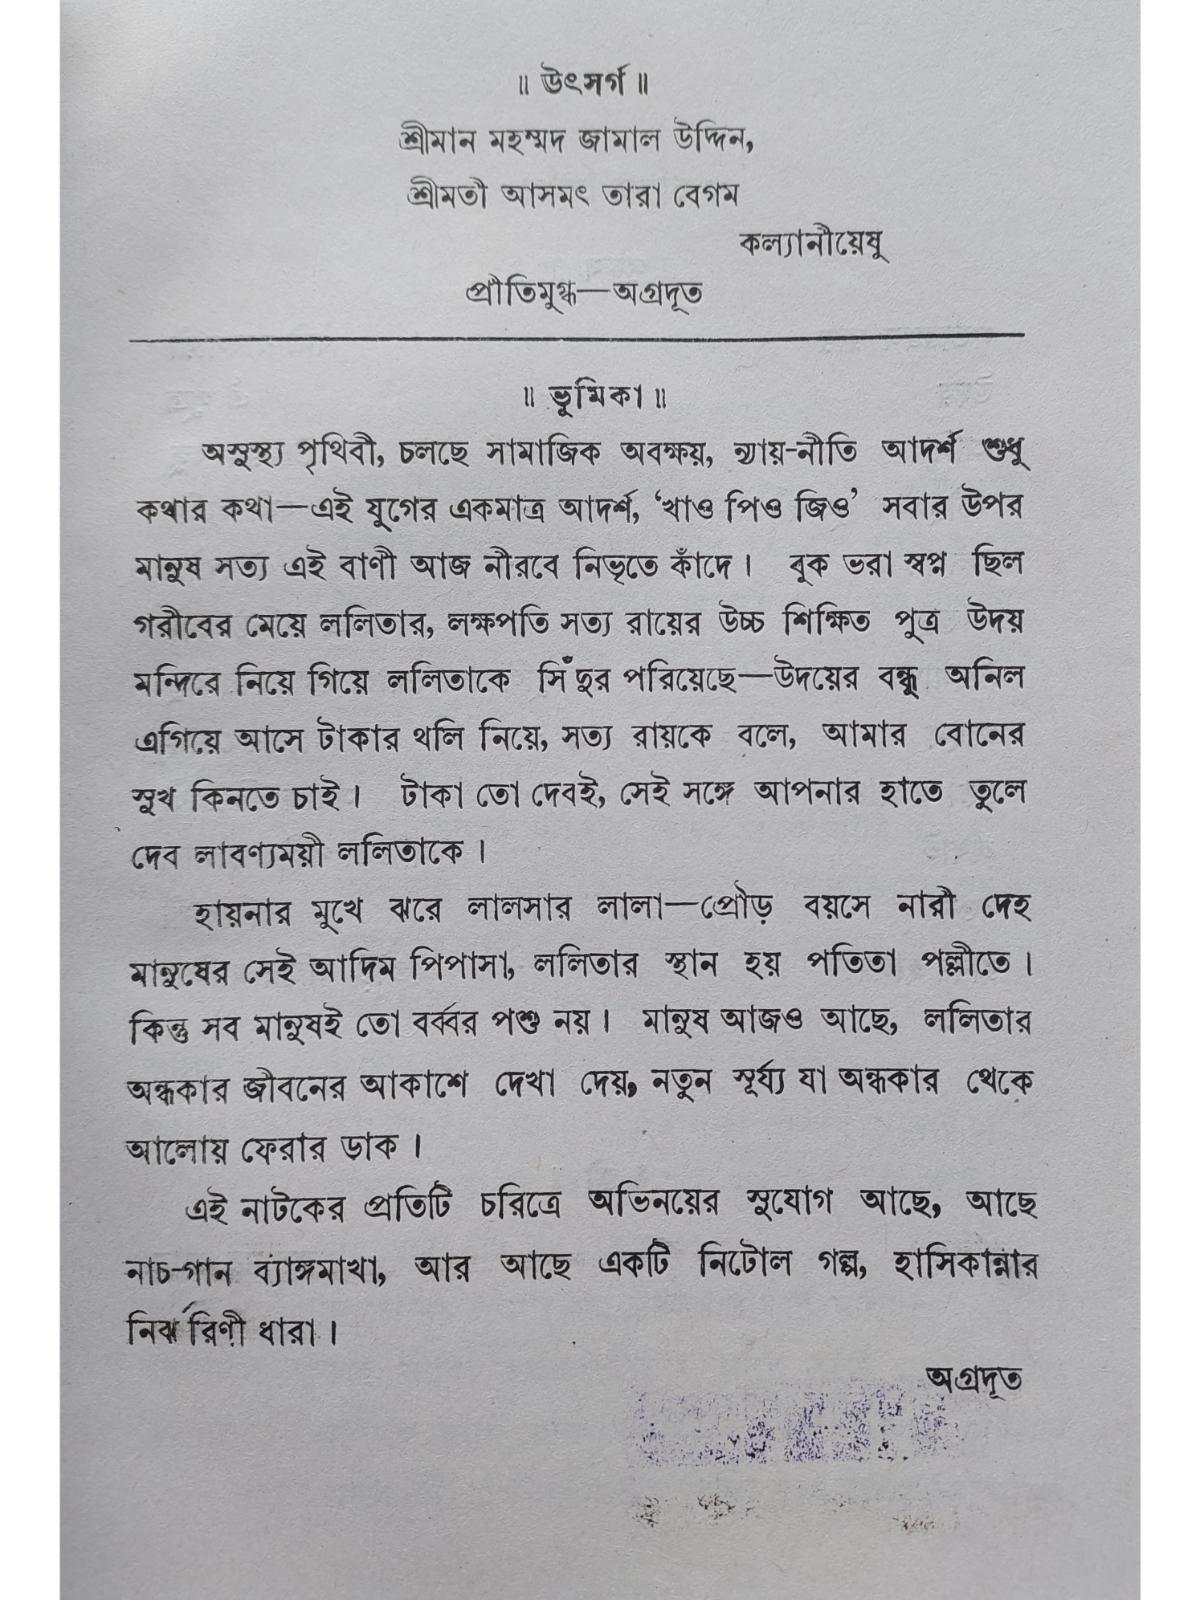 ॥ উৎসর্গ ॥
শ্রীমান মহম্মদ জামাল উদ্দিন,
শ্রীমতী আসমৎ তারা বেগম
কল্যানীয়েষু
প্রীতিমুগ্ধ—অগ্রদূত
॥ ভূমিকা ॥
অসুস্থ্য পৃথিবী, চলছে সামাজিক অবক্ষয়, ন্যায়-নীতি আদর্শ শুধু
কথার কথা—এই যুগের একমাত্র আদর্শ, ‘খাও পিও জিও’ সবার উপর
মানুষ সত্য এই বাণী আজ নীরবে নিভৃতে কাঁদে। বুক ভরা স্বপ্ন ছিল
গরীবের মেয়ে ললিতার, লক্ষপতি সত্য রায়ের উচ্চ শিক্ষিত পুত্র উদয়
মন্দিরে নিয়ে গিয়ে ললিতাকে সিঁদুর পরিয়েছে—উদয়ের বন্ধু অনিল
এগিয়ে আসে টাকার থলি নিয়ে, সত্য রায়কে বলে, আমার বোনের
সুখ কিনতে চাই। টাকা তো দেবই, সেই সঙ্গে আপনার হাতে তুলে
দেব লাবণ্যময়ী ললিতাকে।
হায়নার মুখে ঝরে লালসার লালা—প্রৌড় বয়সে নারী দেহ
মানুষের সেই আদিম পিপাসা, ললিতার স্থান হয় পতিতা পল্লীতে।
কিন্তু সব মানুষই তো বর্ব্বর পশু নয়। মানুষ আজও আছে, ললিতার
অন্ধকার জীবনের আকাশে দেখা দেয়, নতুন সূর্য্য যা অন্ধকার থেকে
আলোয় ফেরার ডাক।
এই নাটকের প্রতিটি চরিত্রে অভিনয়ের সুযোগ আছে, আছে
নাচ-গান ব্যাঙ্গমাখা, আর আছে একটি নিটোল গল্প, হাসিকান্নার
নির্ঝরিণী ধারা।
অগ্রদূত